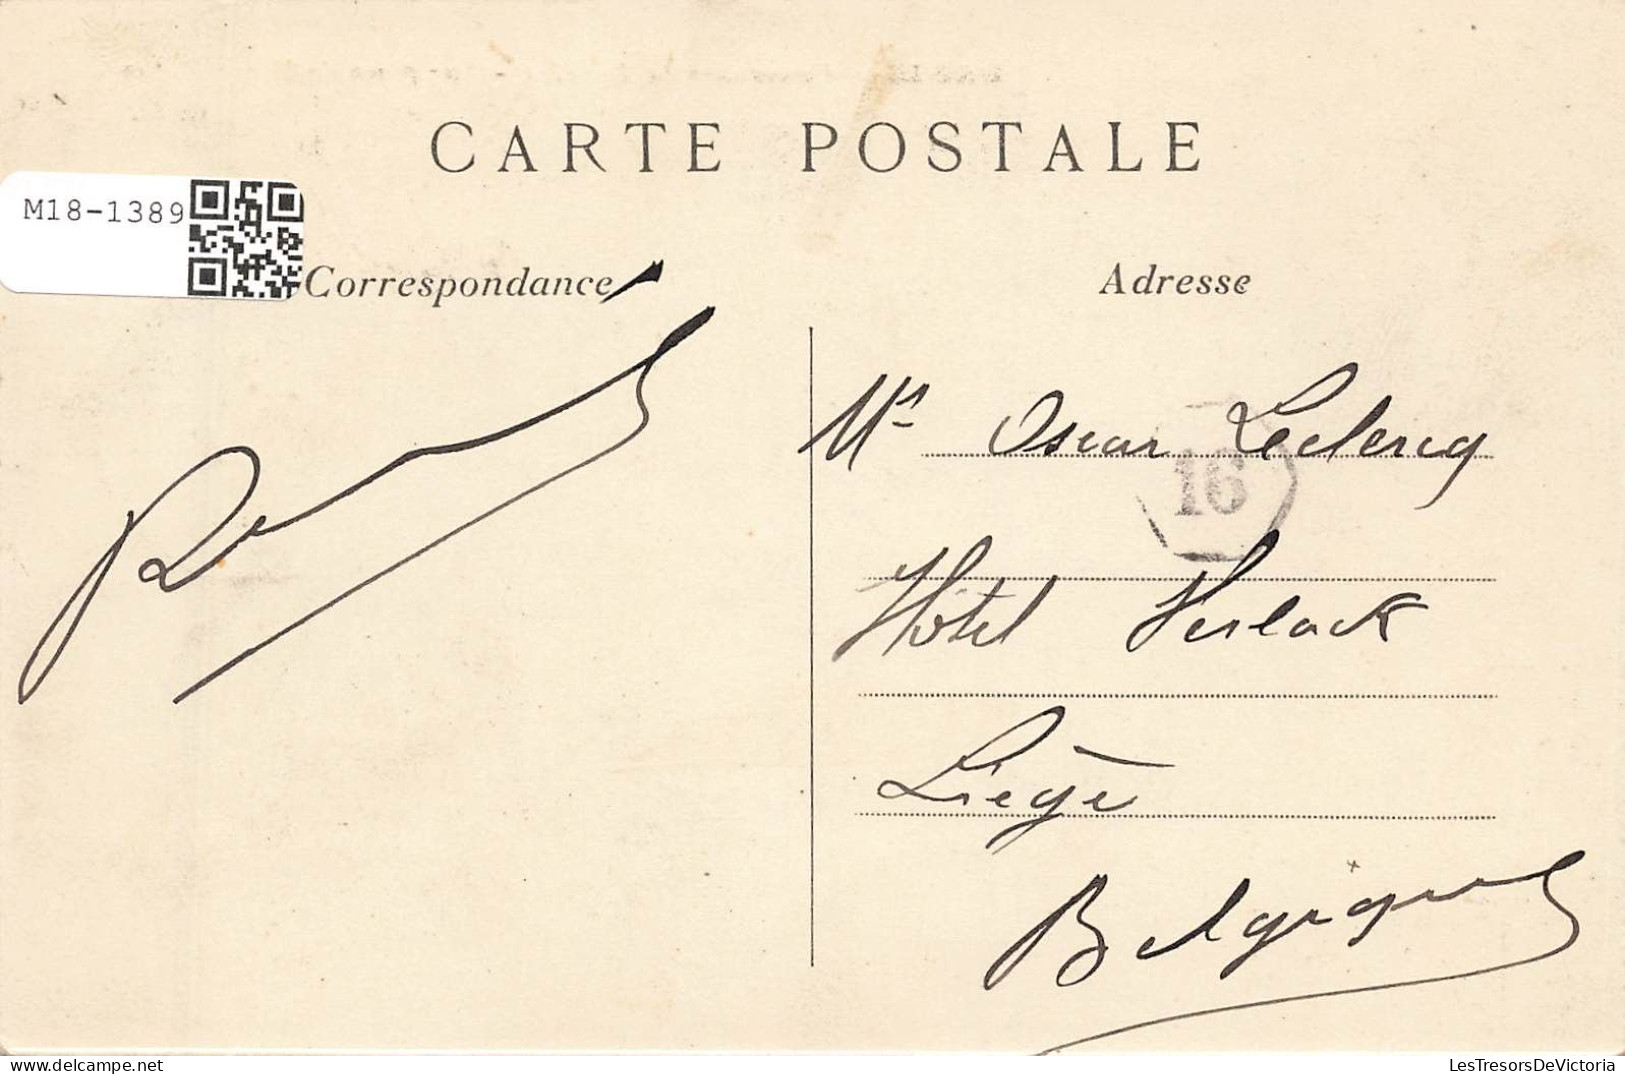 CARTE POSTALE
M18-1389
Correspondance
Adresse
Mr Oscar Leclercq
16
Hôtel Verlack
Liège
Belgique
LesTresorsDeVictoria